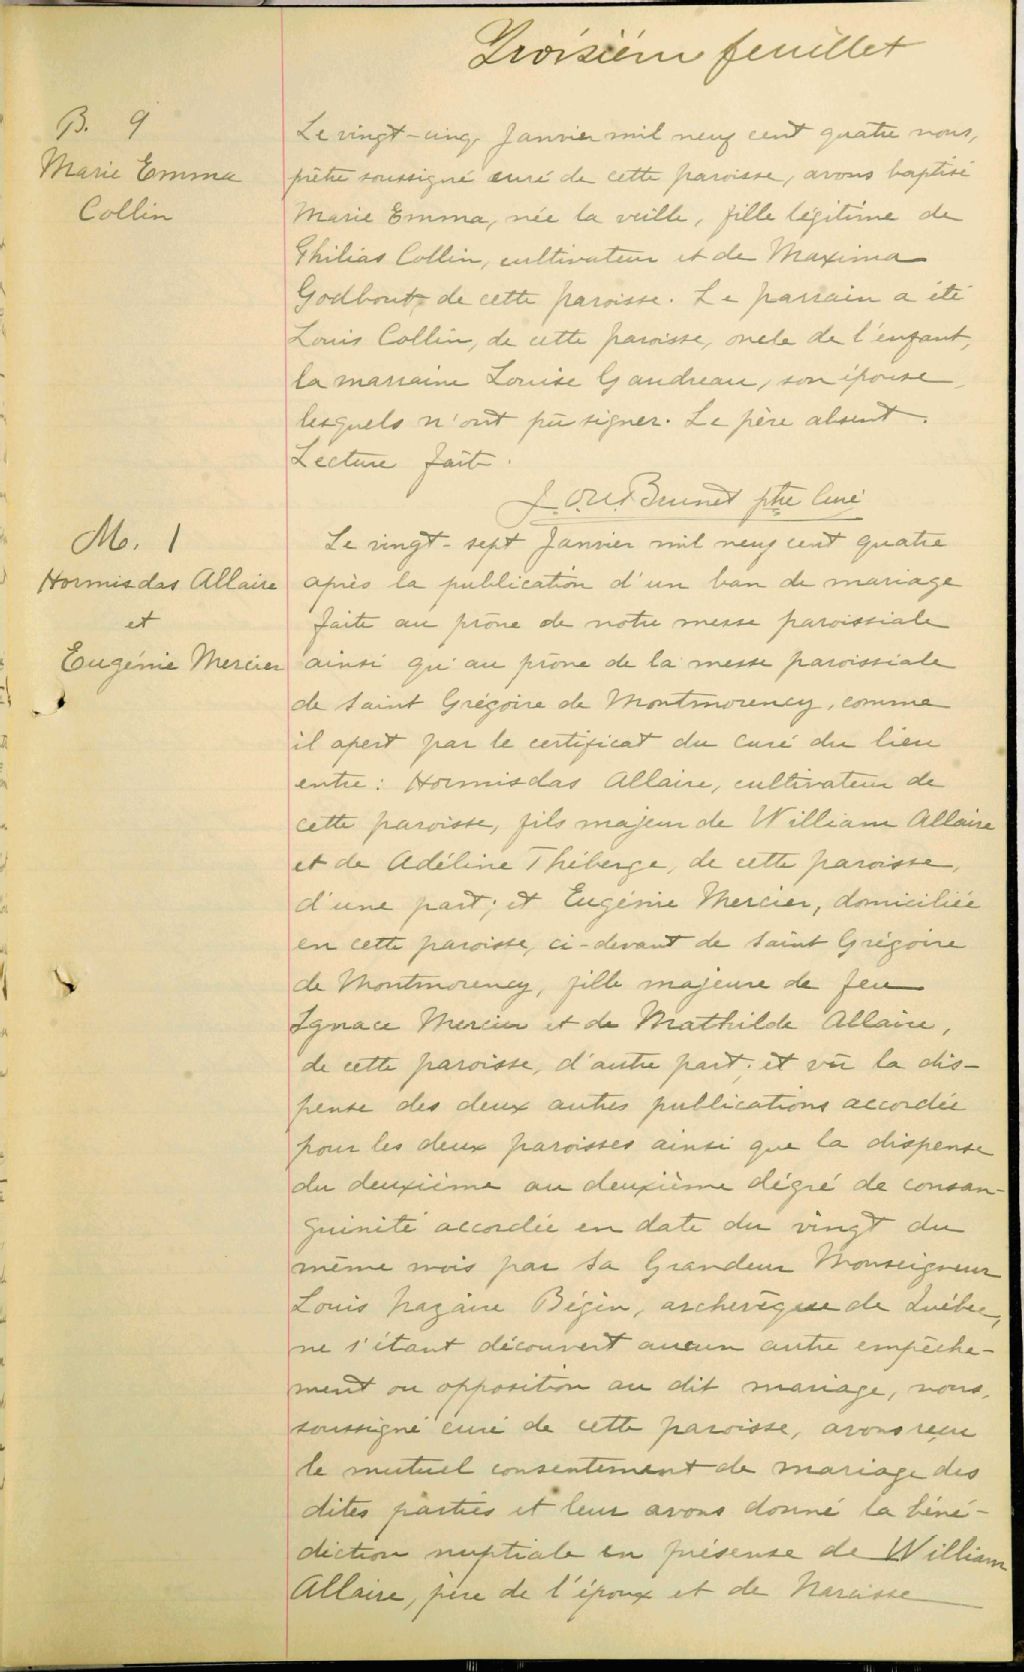 Troisième feuillet
B. 9
Marie Emma
Collin
Le vingt-cinq Janvier mil neuf cent quatre nous,
prêtre soussigné curé de cette paroisse, avons baptisé
Marie Emma, née la veille, fille légitime de
Philias Collin, cultivateur et de Maxima
Godbout, de cette paroisse. Le parrain a été
Louis Collin, de cette paroisse, oncle de l'enfant,
la marraine Louise Gaudreau, son épouse,
lesquels n'ont pû signer. Le père absent.
Lecture faite.
Brunet ptre Curé
M. 1
Hormisdas Allaire
et
Eugénie Mercier
Le vingt-sept Janvier mil neuf cent quatre
après la publication d'un ban de mariage
faite au prône de notre messe paroissiale
ainsi qu'au prône de la messe paroissiale
de Saint Grégoire de Montmorency, comme
il apert par le certificat du curé du lieu
entre: Hormisdas Allaire, cultivateur de
cette paroisse, fils majeur de William Allaire
et de Adéline Théberge, de cette paroisse,
d'une part; et Eugénie Mercier, domiciliée
en cette paroisse, ci-devant de Saint Grégoire
de Montmorency, fille majeure de feu
Ignace Mercier et de Mathilde Allaire,
de cette paroisse, d'autre part; et vû la dis-
pense des deux autres publications accordée
pour les deux paroisses ainsi que la dispense
du deuxième au deuxième dégré de consan-
guinité accordée en date du vingt du
même mois par Sa Grandeur Monseigneur
Louis Nazaire Bégin, archevêque de Québec,
ne s'étant découvert aucun autre empêche-
ment ou opposition au dit mariage, nous,
soussigné curé de cette paroisse, avons reçu
le mutuel consentement de mariage des
dites parties et leur avons donné la béné-
diction nuptiale en présense de William
Allaire, père de l'époux et de Narcisse